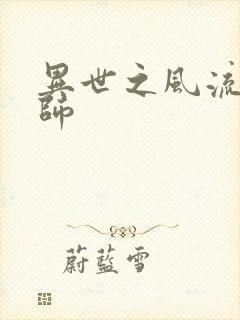 異世之風流
師
蔚藍雪